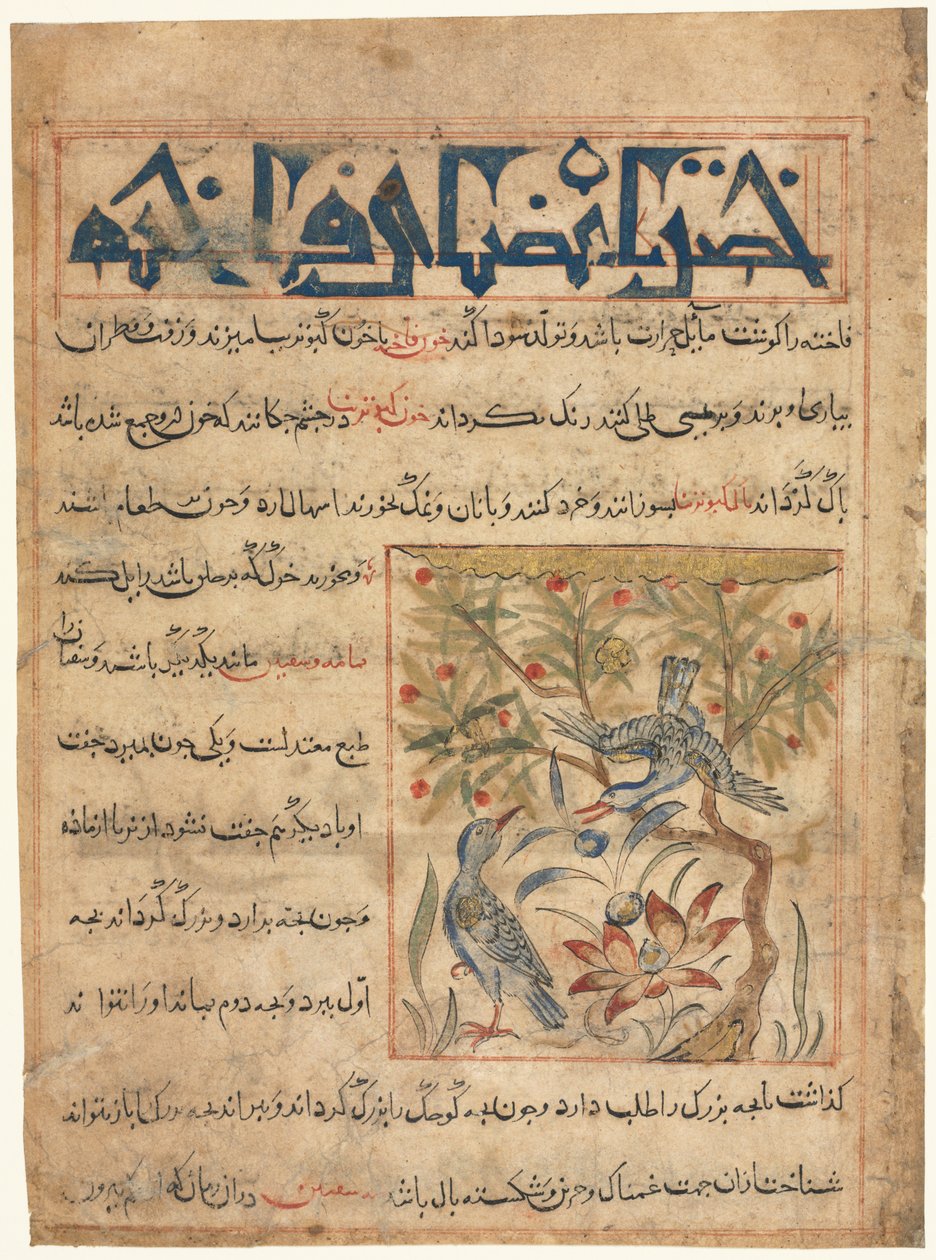 خاصیتها اعضای فاخته
فاخته را گوشت مایل حرارت باشد و تولد سودا کند خون فاخته با خون کبوتر بیامیزند و زفت و قطران
بیاری او برند و بر طلی کنند رنگ بکرداند خون کبوتر در چشم چکانند که خون درو جمع شده باشد
پاک کرداند بسوزانند و خرد کنند و با نان و نمک بخورند اسهال ارد و چون طعام
و بخورند خوک که بر باشد زایل کند
یمامه و سفنین مانند یکدیکر باشند و سفنین را
طبع معتدلست و یکی چون بمیرد جفت
او با دیکر هم جفت نشود از نر یا از ماده
و چون بچه بدارد و بزرک کرداند بچه
اول ببرد و بچه دوم بماند او را نتواند
کذاشت تا بچه بزرک را طلب دارد و چون بچه کوچک را بزرک کرداند و بپراند بچه بزرک را باز نتواند
شناخت از ان جهت غمناک و حزین و شکسته بال باشد سفنین در ان زمان که